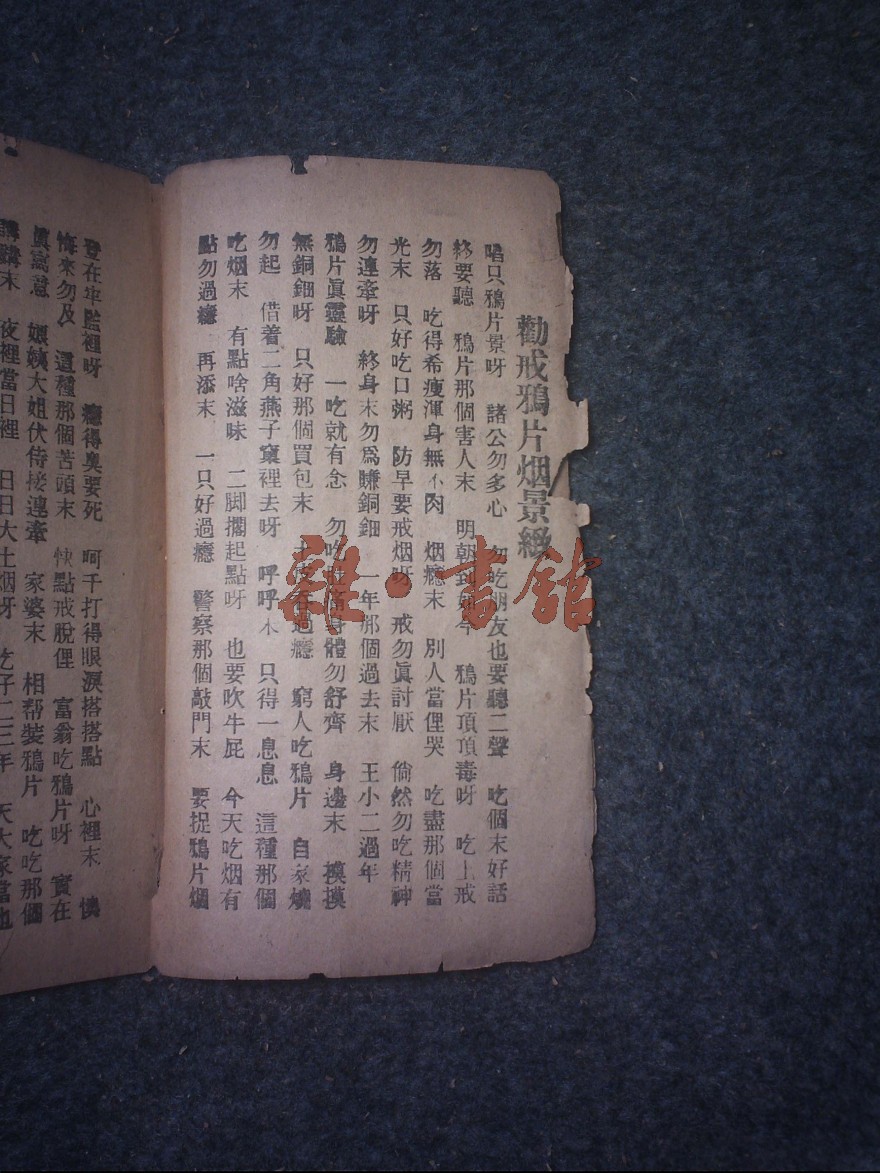 勸戒鴉片烟景緻
唱只鴉片景呀　諸公勿多心　勿吃朋友也要聽二聲　吃個末好話
終要聽　鴉片那個害人末　明朝到如今　鴉片頂頂毒呀　吃上戒
勿落　吃得希瘦渾身無不肉　烟癮末　別人當俚哭　吃盡那個當
光末　只好吃口粥　防早要戒烟呀　戒勿眞討厭　倘然勿吃精神
勿連牽呀　終身末勿爲賺銅鈿　一年那個過去末　王小二過年
鴉片眞靈驗　一吃就有念　勿吃　身體勿舒齊　身邊末　摸摸
無銅鈿呀　只好那個買包末　過癮　窮人吃鴉片　自家燒
勿起　借着二角燕子窠裡去呀　呼呼末　只得一息息　這種那個
吃烟末　有點啥滋味　二脚擱起點呀　也要吹牛屁　今天吃烟有
點勿過癮　再添末　一只好過癮　警察那個敲門末　要捉鴉片烟
登在牢監裡呀　癮得臭要死　呵千打得眼淚搭搭點　心裡末　懊
悔來勿及　這種那個苦頭末　快點戒脫俚　富翁吃鴉片呀　實在
眞寫意　娘姨大姐伏侍接連牽　家婆末　相帮裝鴉片　吃吃那個
末　夜裡當日裡　日日大土烟呀　吃好二三年　天大家當也
雜·書館